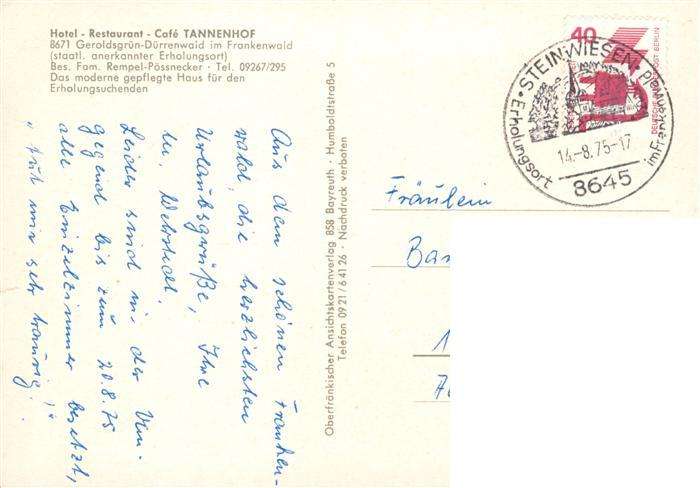 Hotel - Restaurant - Café TANNENHOF
8671 Geroldsgrün-Dürrenwaid im Frankenwald
(staatl. anerkannter Erholungsort)
Bes. Fam. Rempel-Pössnecker · Tel. 09267/295
Das moderne gepflegte Haus für den
Erholungsuchenden
Aus dem schönen Franken-
wald, die herzlichsten
Urlaubsgrüße, Ihre
Leider sind in der
Gegend bis zum 20.8.75
alle Einzelzimmer besetzt,
"tut mir sehr traurig!"
Oberfränkischer Ansichtskartenverlag 858 Bayreuth · Humboldtstraße 5
Telefon 0921/64126 · Nachdruck verboten
40
DEUTSCHE BUNDESPOST BERLIN
STEINWIESEN
Erholungsort
im Frankenwald
14.-8.75-17
8645
Fräulein